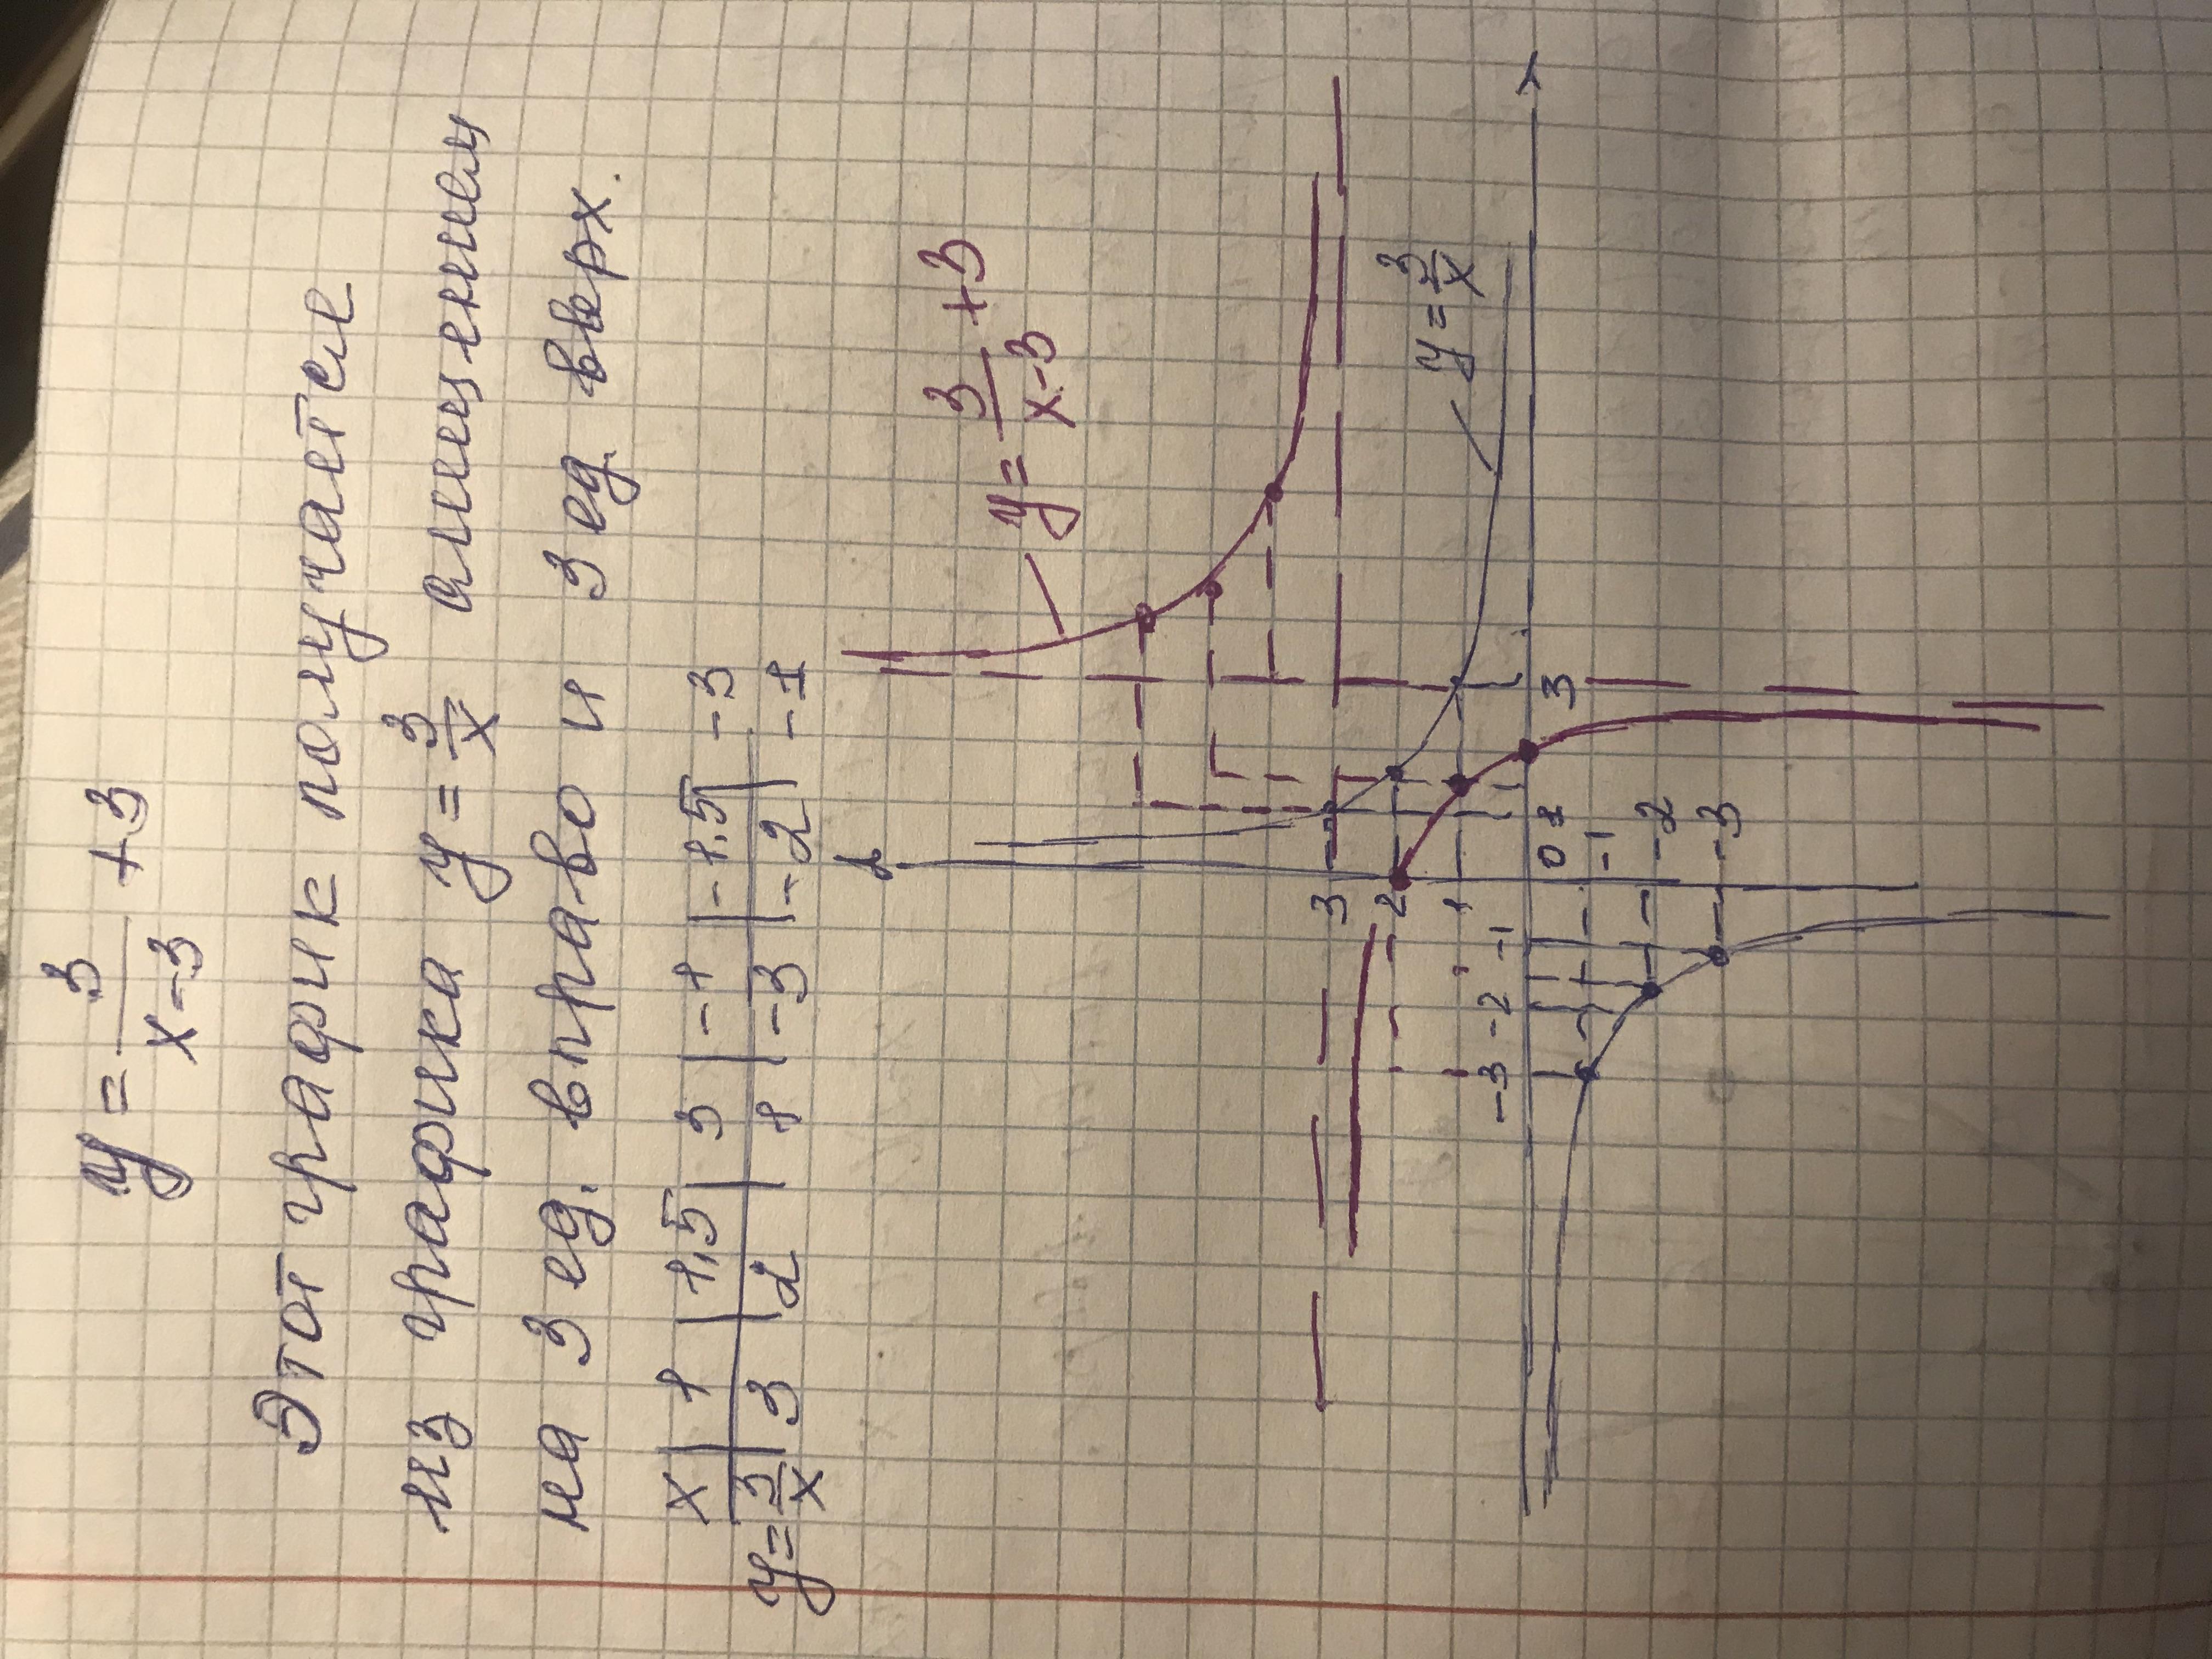 y = 3/(x-3) + 3
Этот график получается
из графика y = 3/x смещением
на 3 ед. вправо и 3 ед. вверх.
x | 1 | 1,5 | 3 | -1 | -1,5 | -3
y = 3/x | 3 | 2 | 1 | -3 | -2 | -1
y = 3/(x-3) + 3
3
2
y = 3/x
1
-3 -2 -1 0 1 3
-1
-2
-3